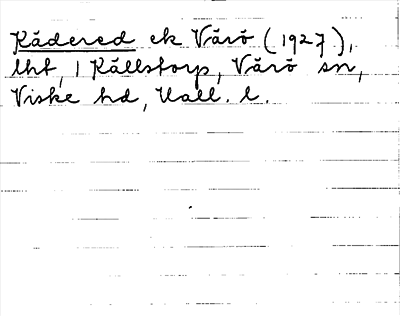 Kådered ek Värö (1927),
lht, 1 Källstorp, Värö sn,
Viske hd, Hall. l.